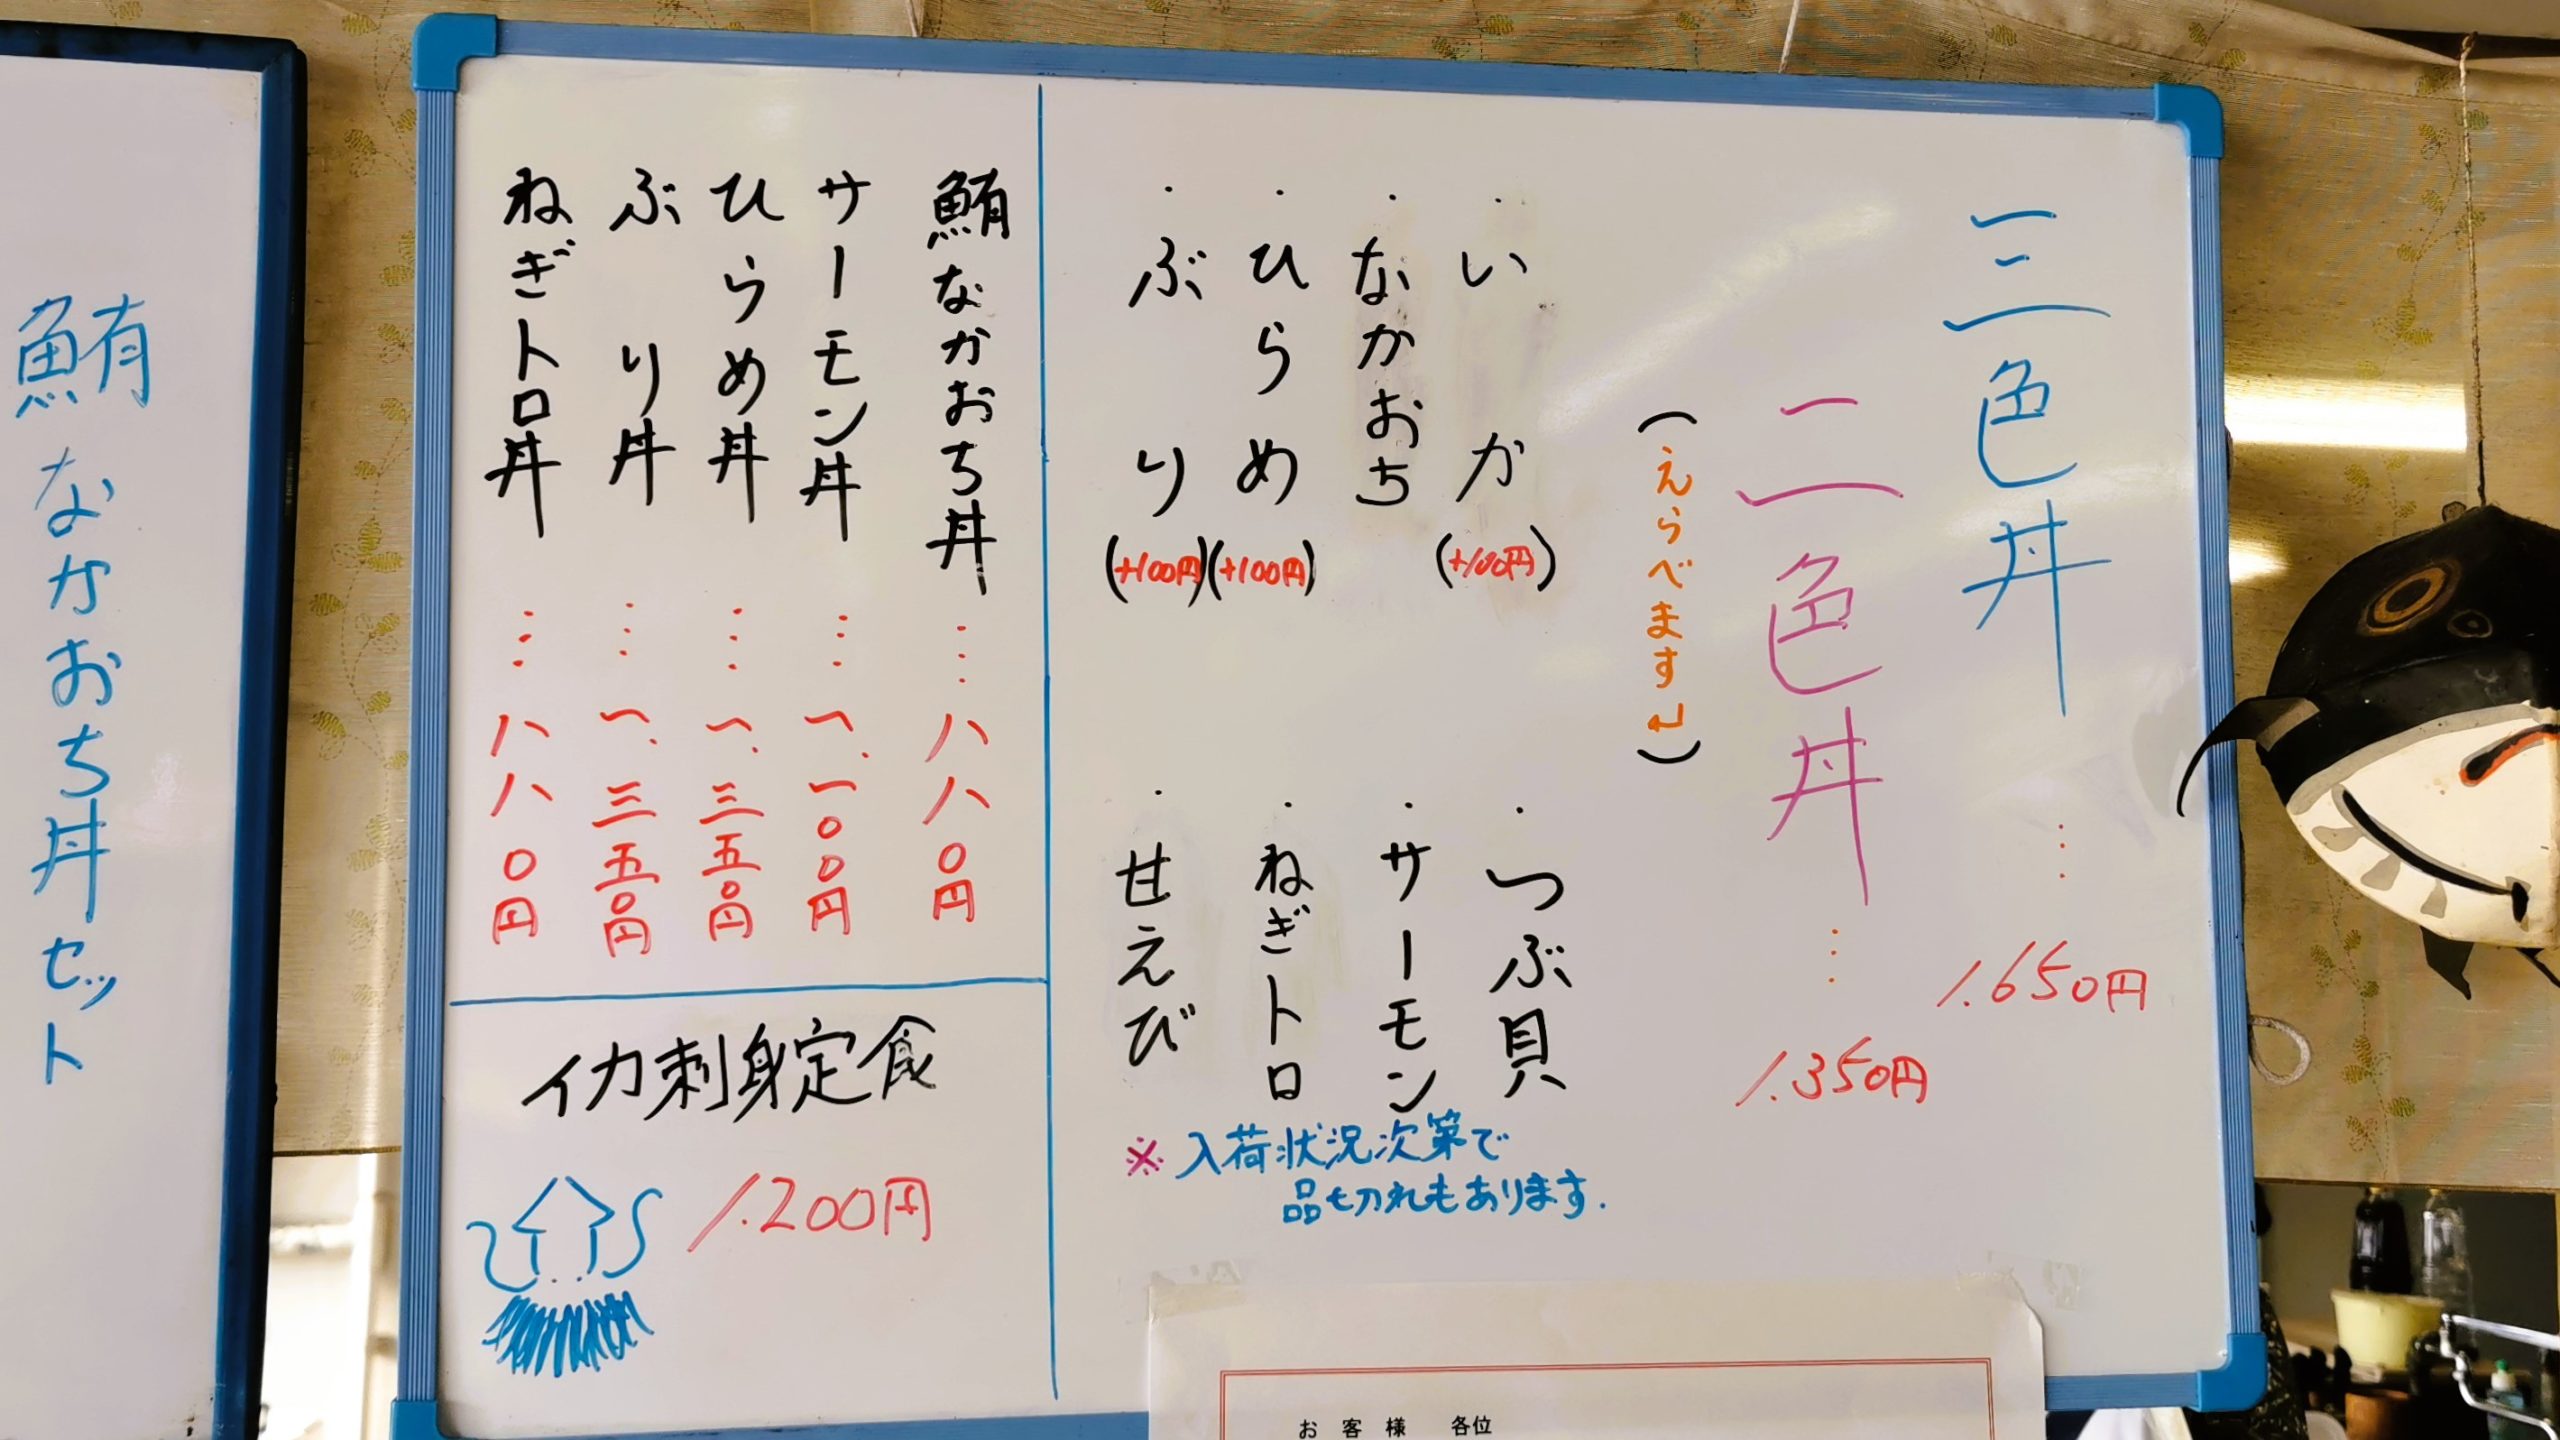 三色丼…1.650円
二色丼…1.350円
(えらべます〆)
・いか(+100円)
・なかおち
・ひらめ(+100円)
・ぶり(+100円)
・つぶ貝
・サーモン
・ねぎトロ
・甘えび
※入荷状況次第で
品切れもあります.
鮪なかおち丼…八八〇円
サーモン丼…一.一〇〇円
ひらめ丼…一.三五〇円
ぶり丼…一.三五〇円
ねぎトロ丼…八八〇円
イカ刺身定食
1.200円
鮪なかおち丼セット
お客様 各位